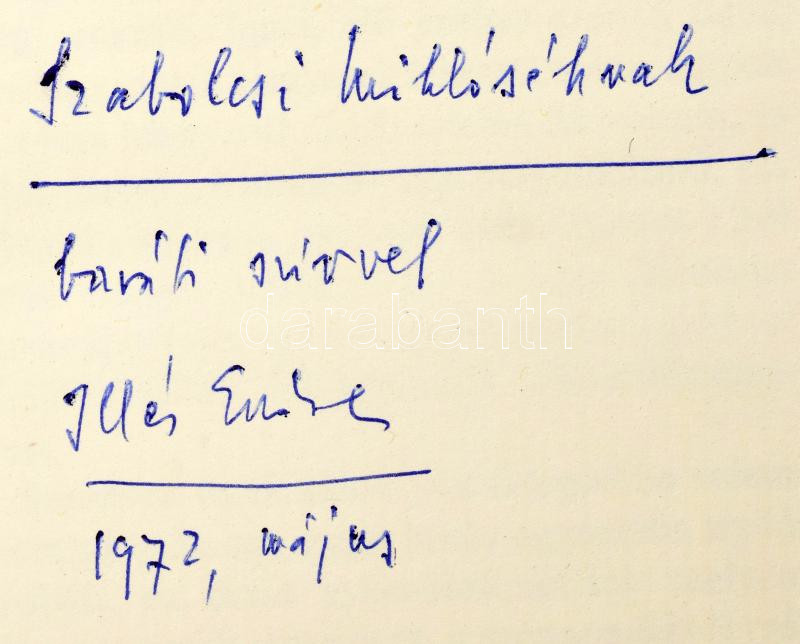 Szabolcsi Miklóséknak
baráti szívvel
darabanth
Illés Endre
1972, május